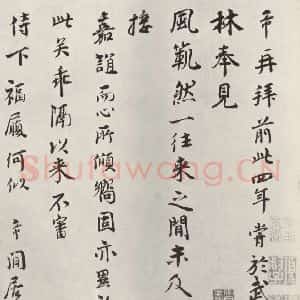 再拜前此四年嘗於武
林奉見
風範然一往來之間未及
款
嘉誼而心所傾嚮固亦異於
此矣乖隔以來不審
侍下福履何似 澗居
Shufawang.CN